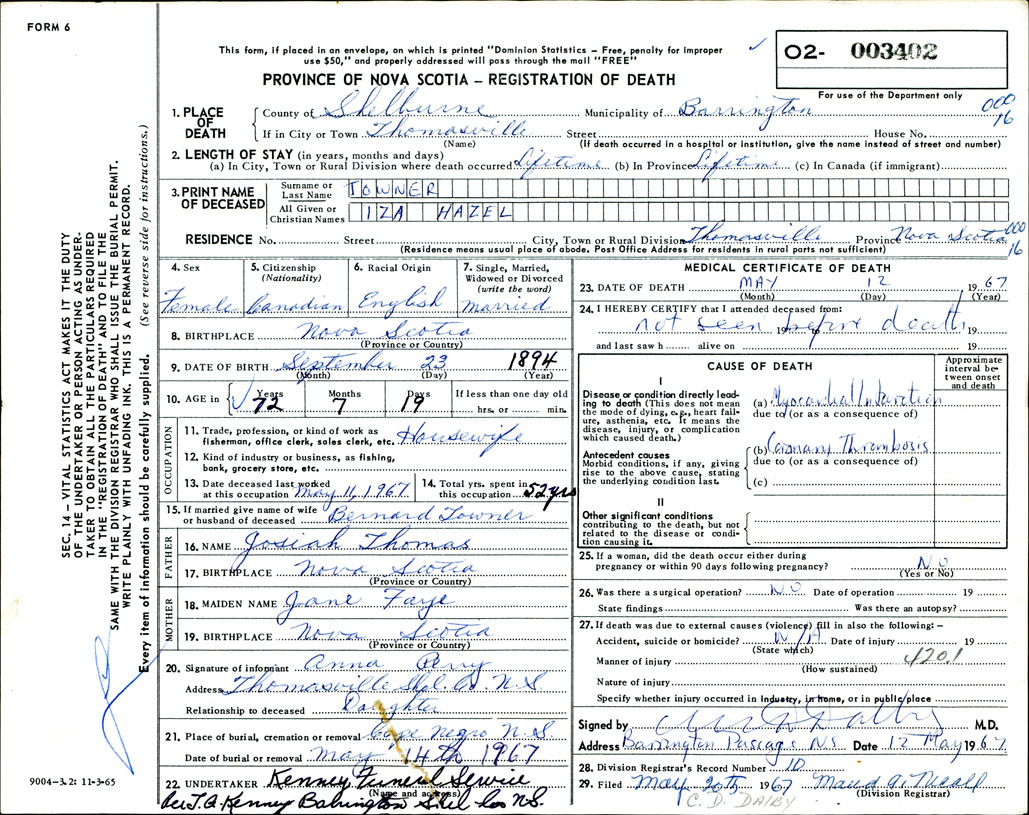 FORM 6
This form, if placed in an envelope, on which is printed "Dominion Statistics – Free, penalty for improper
use $50," and properly addressed will pass through the mail "FREE"
✓ O2- 003402
PROVINCE OF NOVA SCOTIA – REGISTRATION OF DEATH
For use of the Department only
SEC. 14 – VITAL STATISTICS ACT MAKES IT THE DUTY
OF THE UNDERTAKER OR PERSON ACTING AS UNDER-
TAKER TO OBTAIN ALL THE PARTICULARS REQUIRED
IN THE "REGISTRATION OF DEATH" AND TO FILE THE
SAME WITH THE DIVISION REGISTRAR WHO SHALL ISSUE THE BURIAL PERMIT.
WRITE PLAINLY WITH UNFADING INK. THIS IS A PERMANENT RECORD.
Every item of information should be carefully supplied. (See reverse side for instructions.)
1. PLACE OF DEATH
County of Shelburne Municipality of Barrington 000 16
If in City or Town Thomasville Street House No.
(Name) (If death occurred in a hospital or institution, give the name instead of street and number)
2. LENGTH OF STAY (in years, months and days)
(a) In City, Town or Rural Division where death occurred Lifetime (b) In Province Lifetime (c) In Canada (if immigrant)
3. PRINT NAME OF DECEASED
Surname or Last Name TOWNER
All Given or Christian Names IZA HAZEL
RESIDENCE No. Street City, Town or Rural Division Thomasville Province Nova Scotia 000 16
(Residence means usual place of abode. Post Office Address for residents in rural parts not sufficient)
4. Sex Female
5. Citizenship (Nationality) Canadian
6. Racial Origin English
7. Single, Married, Widowed or Divorced (write the word) Married
8. BIRTHPLACE Nova Scotia
(Province or Country)
9. DATE OF BIRTH September 23 1894
(Month) (Day) (Year)
10. AGE in Years Months Days If less than one day old
✓ 72 7 19 hrs. or min.
OCCUPATION
11. Trade, profession, or kind of work as
fisherman, office clerk, sales clerk, etc. Housewife
12. Kind of industry or business, as fishing,
bank, grocery store, etc.
13. Date deceased last worked
at this occupation May 11, 1967
14. Total yrs. spent in
this occupation 52 yrs
15. If married give name of wife
or husband of deceased Bernard Towner
FATHER
16. NAME Josiah Thomas
17. BIRTHPLACE Nova Scotia
(Province or Country)
MOTHER
18. MAIDEN NAME Jane Faye
19. BIRTHPLACE Nova Scotia
(Province or Country)
20. Signature of informant Anna Perry
Address Thomasville Shel. Co. N.S.
Relationship to deceased Daughter
21. Place of burial, cremation or removal Cape Negro N.S.
Date of burial or removal May 14th 1967
22. UNDERTAKER Kenney Funeral Service
(Name and address)
Per J.A. Kenney Barrington Shel Co N.S.
9004–3.2: 11-3-65
MEDICAL CERTIFICATE OF DEATH
23. DATE OF DEATH MAY 12 1967
(Month) (Day) (Year)
24. I HEREBY CERTIFY that I attended deceased from:
not seen 19 before death 19
and last saw h alive on 19
CAUSE OF DEATH
Approximate interval be-
tween onset
and death
I
Disease or condition directly lead-
ing to death (This does not mean
the mode of dying, e.g., heart fail-
ure, asthenia, etc. It means the
disease, injury, or complication
which caused death.)
(a) Myocardial Infarction
due to (or as a consequence of)
Antecedent causes
Morbid conditions, if any, giving
rise to the above cause, stating
the underlying condition last.
(b) Coronary Thrombosis
due to (or as a consequence of)
(c)
II
Other significant conditions
contributing to the death, but not
related to the disease or condi-
tion causing it.
25. If a woman, did the death occur either during
pregnancy or within 90 days following pregnancy? NO
(Yes or No)
26. Was there a surgical operation? NO Date of operation 19
State findings Was there an autopsy?
27. If death was due to external causes (violence) fill in also the following: –
Accident, suicide or homicide? N/A Date of injury 19
(State which)
Manner of injury 420.1
(How sustained)
Nature of injury
Specify whether injury occurred in Industry, in home, or in public place
Signed by Dalby M.D.
Address Barrington Passage NS Date 12 May 1967
28. Division Registrar's Record Number 10
29. Filed May 20th 1967 Maud A.
(Division Registrar)
C. D. DALBY